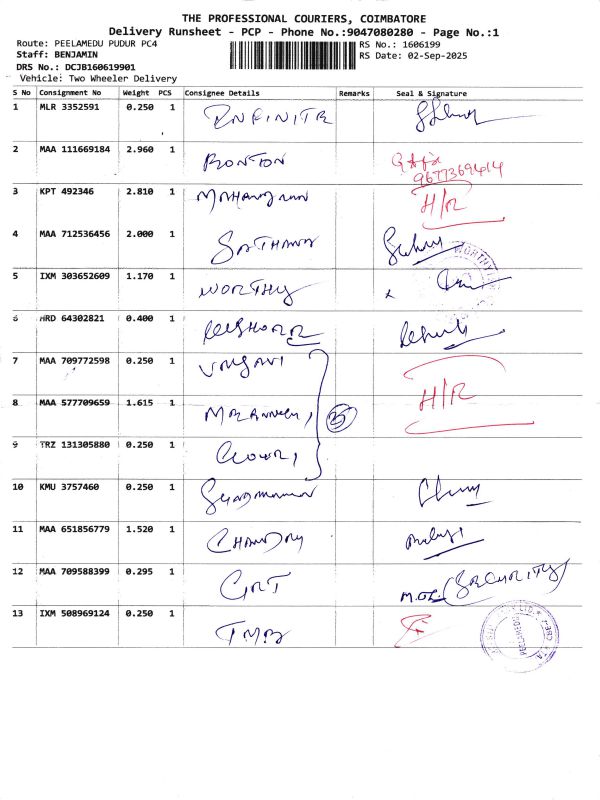 THE PROFESSIONAL COURIERS, COIMBATORE
Delivery Runsheet - PCP - Phone No.:9047080280 - Page No.:1
Route: PEELAMEDU PUDUR PC4
RS No.: 1606199
Staff: BENJAMIN
RS Date: 02-Sep-2025
DRS No.: DCJB160619901
Vehicle: Two Wheeler Delivery
S No Consignment No Weight PCS Consignee Details Remarks Seal & Signature
1 MLR 3352591 0.250 1 INFINITE
2 MAA 111669184 2.960 1 BONTON
9677369414
3 KPT 492346 2.810 1 H/R
4 MAA 712536456 2.000 1 SATHANA
5 IXM 303652609 1.170 1 WORTHY
6 HRD 64302821 0.400 1
7 MAA 709772598 0.250 1
8 MAA 577709659 1.615 1 35 H/R
9 TRZ 131305880 0.250 1
10 KMU 3757460 0.250 1
11 MAA 651856779 1.520 1
12 MAA 709588399 0.295 1 GRT (SECURITY)
13 IXM 508969124 0.250 1 TMB